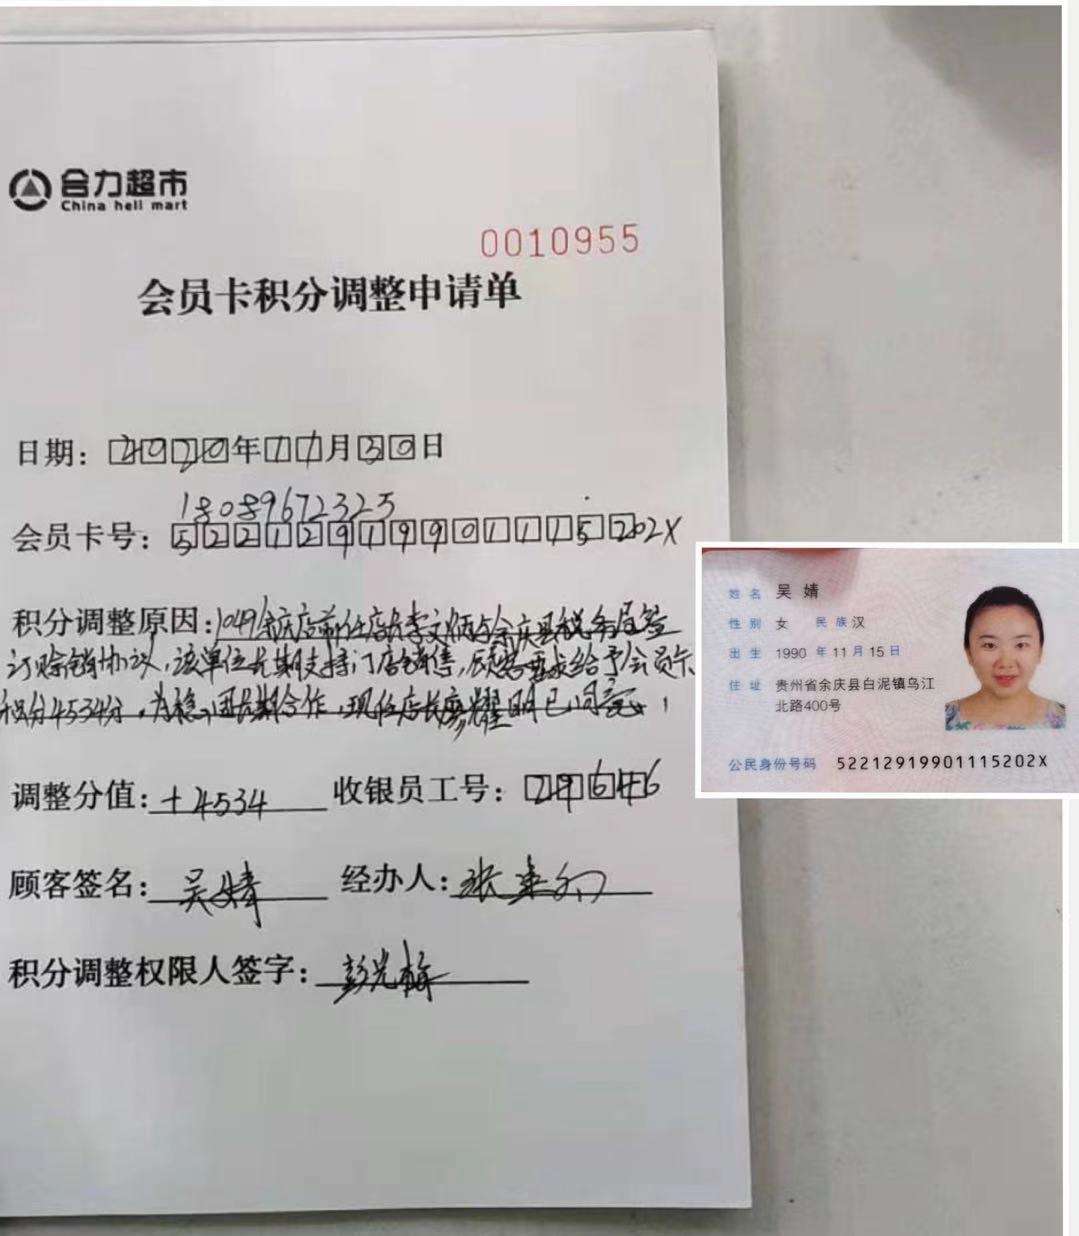 合力超市
China heli mart
0010955
会员卡积分调整申请单
日期：2020年11月30日
18089672325
会员卡号：52212919901115202X
积分调整原因：1049余庆店前任店长李文炳与余庆县税务局签
订赊销协议，该单位长期支持门店销售，顾客要求给予会员卡
积分4534分，为稳固长期合作，现任店长廖耀明已同意！
调整分值：+4534 收银员工号：29646
顾客签名：吴婧 经办人：张
积分调整权限人签字：彭光梅
姓名 吴婧
性别 女 民族 汉
出生 1990 年 11 月 15 日
住址 贵州省余庆县白泥镇乌江
北路400号
公民身份号码 52212919901115202X